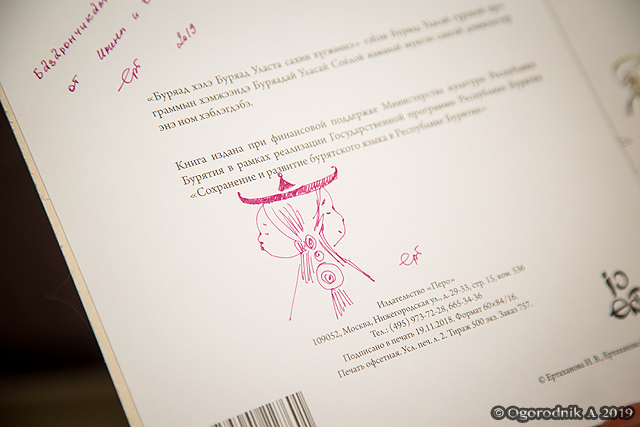 Баварончикам
от
2019
«Буряад хэлэ Буряад Уласта сахин хүгжөөхэ» гэһэн Буряад Уласай гүрэнэй про-
граммын хэмжээндэ Буряадай Уласай Соёлой яаманай мүнгэн
энэ ном хэблэгдэбэ.
Книга издана при финансовой поддержке Министерства культуры Республики
Бурятия в рамках реализации Государственной программы Республики Бурятия
«Сохранение и развитие бурятского языка в Республике Бурятия».
Издательство «Перо»
109052, Москва, Нижегородская ул., д. 29-33, стр. 15, ком. 536
Тел.: (495) 973-72-28, 665-34-36
Подписано в печать 19.11.2018. Формат 60×84/16.
Печать офсетная. Усл. печ. л. 2. Тираж 500 экз. Заказ 757.
© Ертаханова И. В., Ертаханов
© Ogorodnik A 2019